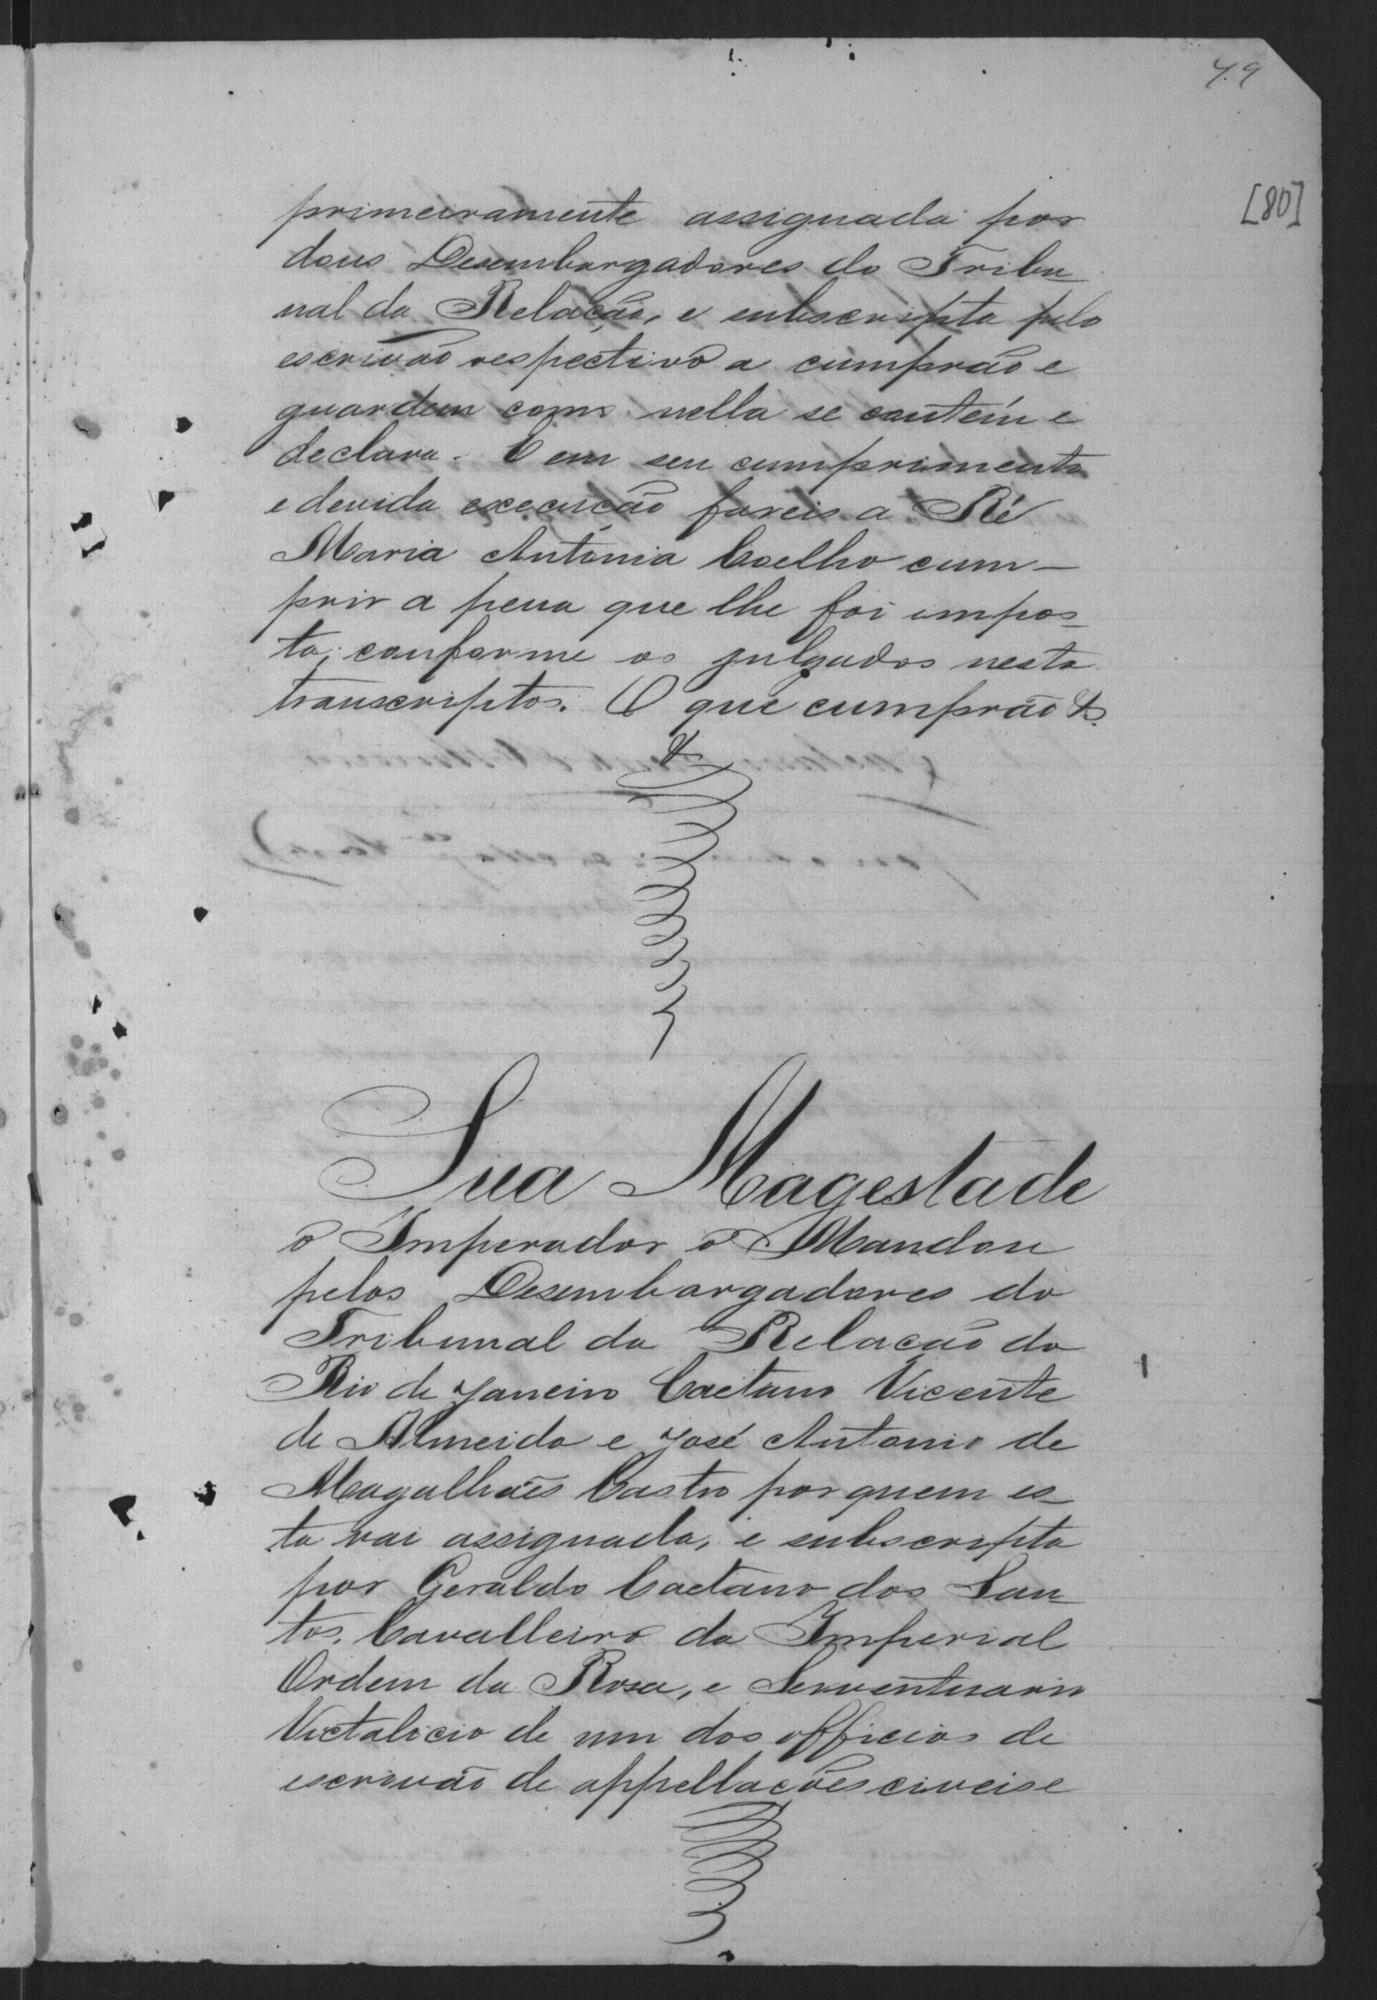 79
[80]
primeiramente assignada por
dous Desembargadores do Tribu
nal da Relação, e subscripta pelo
escrivão respectivo a cumprão e
guardem como nella se contém e
declara. E em seu cumprimento
e devida execução fareis a Ré
Maria Antónia Coelho cum-
prir a pena que lhe foi impos_
ta, conforme os julgados nesta
transcriptos. O que cumprão &.
Sua Magestade
o Imperador o Mandou
pelos Desembargadores do
Tribunal da Relação do
Rio de Janeiro Caetano Vicente
de Almeida e José Antonio de
Magalhães Castro por quem es_
ta vai assignada, e subscripta
por Geraldo Caetano dos San_
tos, Cavalleiro da Imperial
Ordem da Rosa, e Serventuario
Victalicio de um dos officios de
escrivão de appellações civeis e